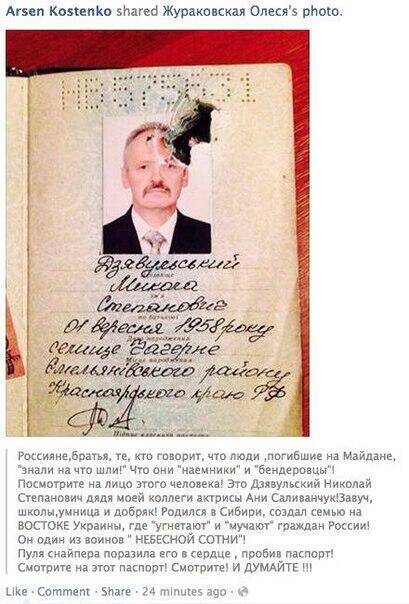 Arsen Kostenko shared Жураковская Олеся's photo.
Дзявульський
Микола
Степанович
по батькові
01 вересня 1958 року
Дата народження
селище Загерне
Місце народження
Ємельянівського району
Красноярського краю РФ
Россияне,братья, те, кто говорит, что люди ,погибшие на Майдане,
"знали на что шли!" Что они "наемники" и "бендеровцы"!
Посмотрите на лицо этого человека! Это Дзявульский Николай
Степанович дядя моей коллеги актрисы Ани Саливанчук!Завуч,
школы,умница и добряк! Родился в Сибири, создал семью на
ВОСТОКЕ Украины, где "угнетают" и "мучают" граждан России!
Он один из воинов " НЕБЕСНОЙ СОТНИ"!
Пуля снайпера поразила его в сердце , пробив паспорт!
Смотрите на этот паспорт! Смотрите! И ДУМАЙТЕ !!!
Like · Comment · Share · 24 minutes ago ·